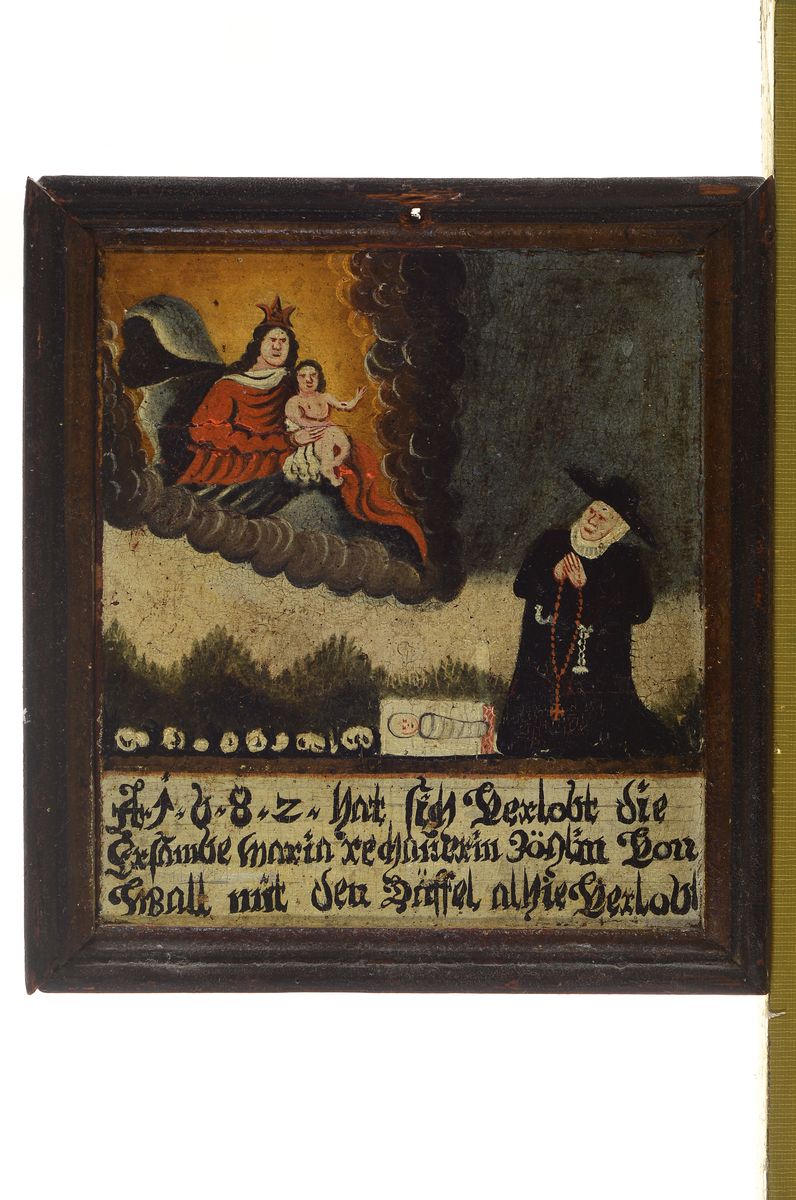 A·1·6·8·2· hat sich Verlobt die
Ersambe Maria rechauerin Zöhlin Von
Wall mit den Däffel alhie Verlobt